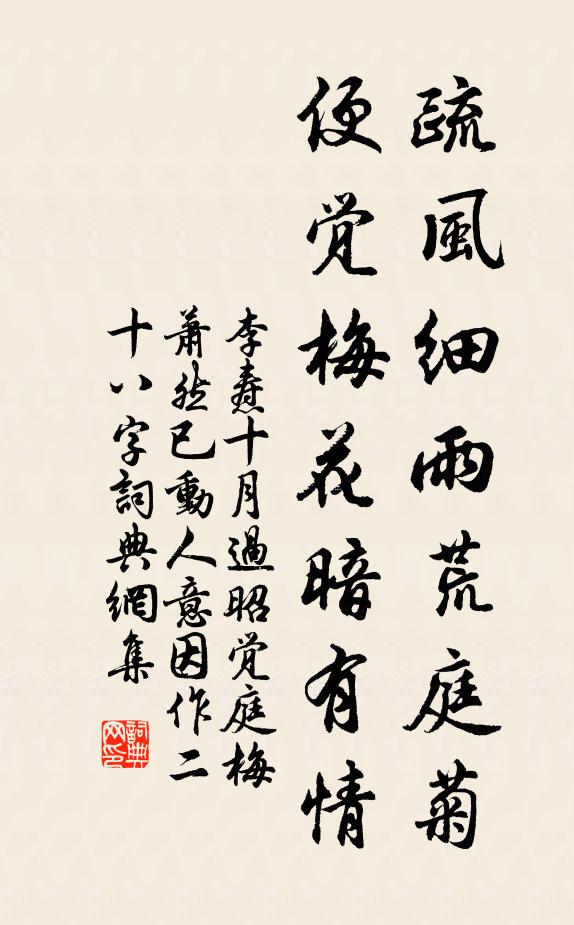 疏風細雨荒庭菊
便觉梅花暗有情
李焘十月過昭觉庭梅
蕭然已動人意因作二
十八字詞典網集
詞典网印